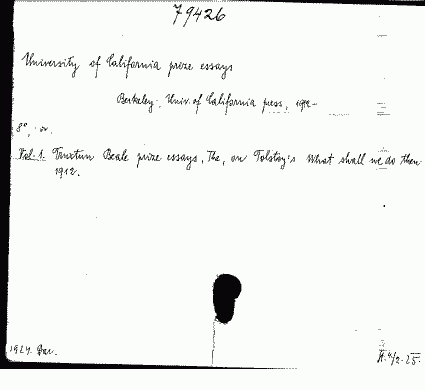 79426
University of California prize essays
Berkeley: Univ. of California press, 191-
8°.
Vol. 1. Truxtun Beale prize essays, The, on Tolstoy's What shall we do then
1912.
1924. Dar.